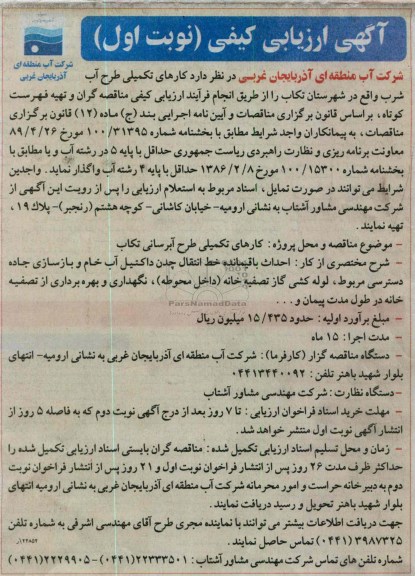 آگهی ارزیابی کیفی (نوبت اول)
شرکت آب منطقه ای
آذربایجان غربی
شرکت آب منطقه ای آذربایجان غربی در نظر دارد کارهای تکمیلی طرح آب
شرب واقع در شهرستان تکاب را از طریق انجام فرآیند ارزیابی کیفی مناقصه گران و تهیه فهرست
کوتاه، براساس قانون برگزاری مناقصات و آیین نامه اجرایی بند (ج) ماده (۱۲) قانون برگزاری
مناقصات، به پیمانکاران واجد شرایط مطابق با بخشنامه شماره ۱۰۰/۳۱۳۹۵ مورخ ۸۹/۴/۲۶
معاونت برنامه ریزی و نظارت راهبردی ریاست جمهوری حداقل با پایه ۵ در رشته آب و یا مطابق با
بخشنامه شماره ۱۰۰/۱۵۳۰۰ مورخ ۱۳۸۶/۲/۸ حداقل با پایه ۴ رشته آب واگذار نماید. واجدین
شرایط می توانند در صورت تمایل، اسناد مربوط به استعلام ارزیابی را پس از رویت این آگهی از
شرکت مهندسی مشاور آشتاب به نشانی ارومیه- خیابان کاشانی- کوچه هشتم (رنجبر)- پلاک ۱۹،
تهیه نمایند.
- موضوع مناقصه و محل پروژه: کارهای تکمیلی طرح آبرسانی تکاب
- شرح مختصری از کار: احداث باقیمانده خط انتقال چدن داکتیل آب خام و بازسازی جاده
دسترسی مربوط، لوله کشی گاز تصفیه خانه (داخل محوطه)، نگهداری و بهره برداری از تصفیه
خانه در طول مدت پیمان و ...
- مبلغ برآورد اولیه: حدود ۱۵/۴۳۵ میلیون ریال
- مدت اجرا: ۱۵ ماه
- دستگاه مناقصه گزار (کارفرما): شرکت آب منطقه ای آذربایجان غربی به نشانی ارومیه- انتهای
بلوار شهید باهنر تلفن: ۰۴۴۱۳۴۴۰۰۹۲
- دستگاه نظارت: شرکت مهندسی مشاور آشتاب
- مهلت خرید اسناد فراخوان ارزیابی: تا ۷ روز بعد از درج آگهی نوبت دوم که به فاصله ۵ روز از
انتشار آگهی نوبت اول منتشر خواهد شد.
- زمان و محل تسلیم اسناد ارزیابی تکمیل شده: مناقصه گران بایستی اسناد ارزیابی تکمیل شده را
حداکثر ظرف مدت ۲۶ روز پس از انتشار فراخوان نوبت اول و ۲۱ روز پس از انتشار فراخوان نوبت
دوم به دبیرخانه حراست و امور محرمانه شرکت آب منطقه ای آذربایجان غربی به نشانی ارومیه انتهای
بلوار شهید باهنر تحویل و رسید دریافت نمایند.
جهت دریافت اطلاعات بیشتر می توانند با نماینده مجری طرح آقای مهندسی اشرفی به شماره تلفن
۳۹۸۷۳۲۵ (۰۴۴۱) تماس حاصل نمایند.
شماره های تلفن تماس شرکت مهندسی مشاور آشتاب: ۲۲۳۳۳۵۰۱(۰۴۴۱)-۲۲۲۹۹۰۵(۰۴۴۱)
ParsNamadData